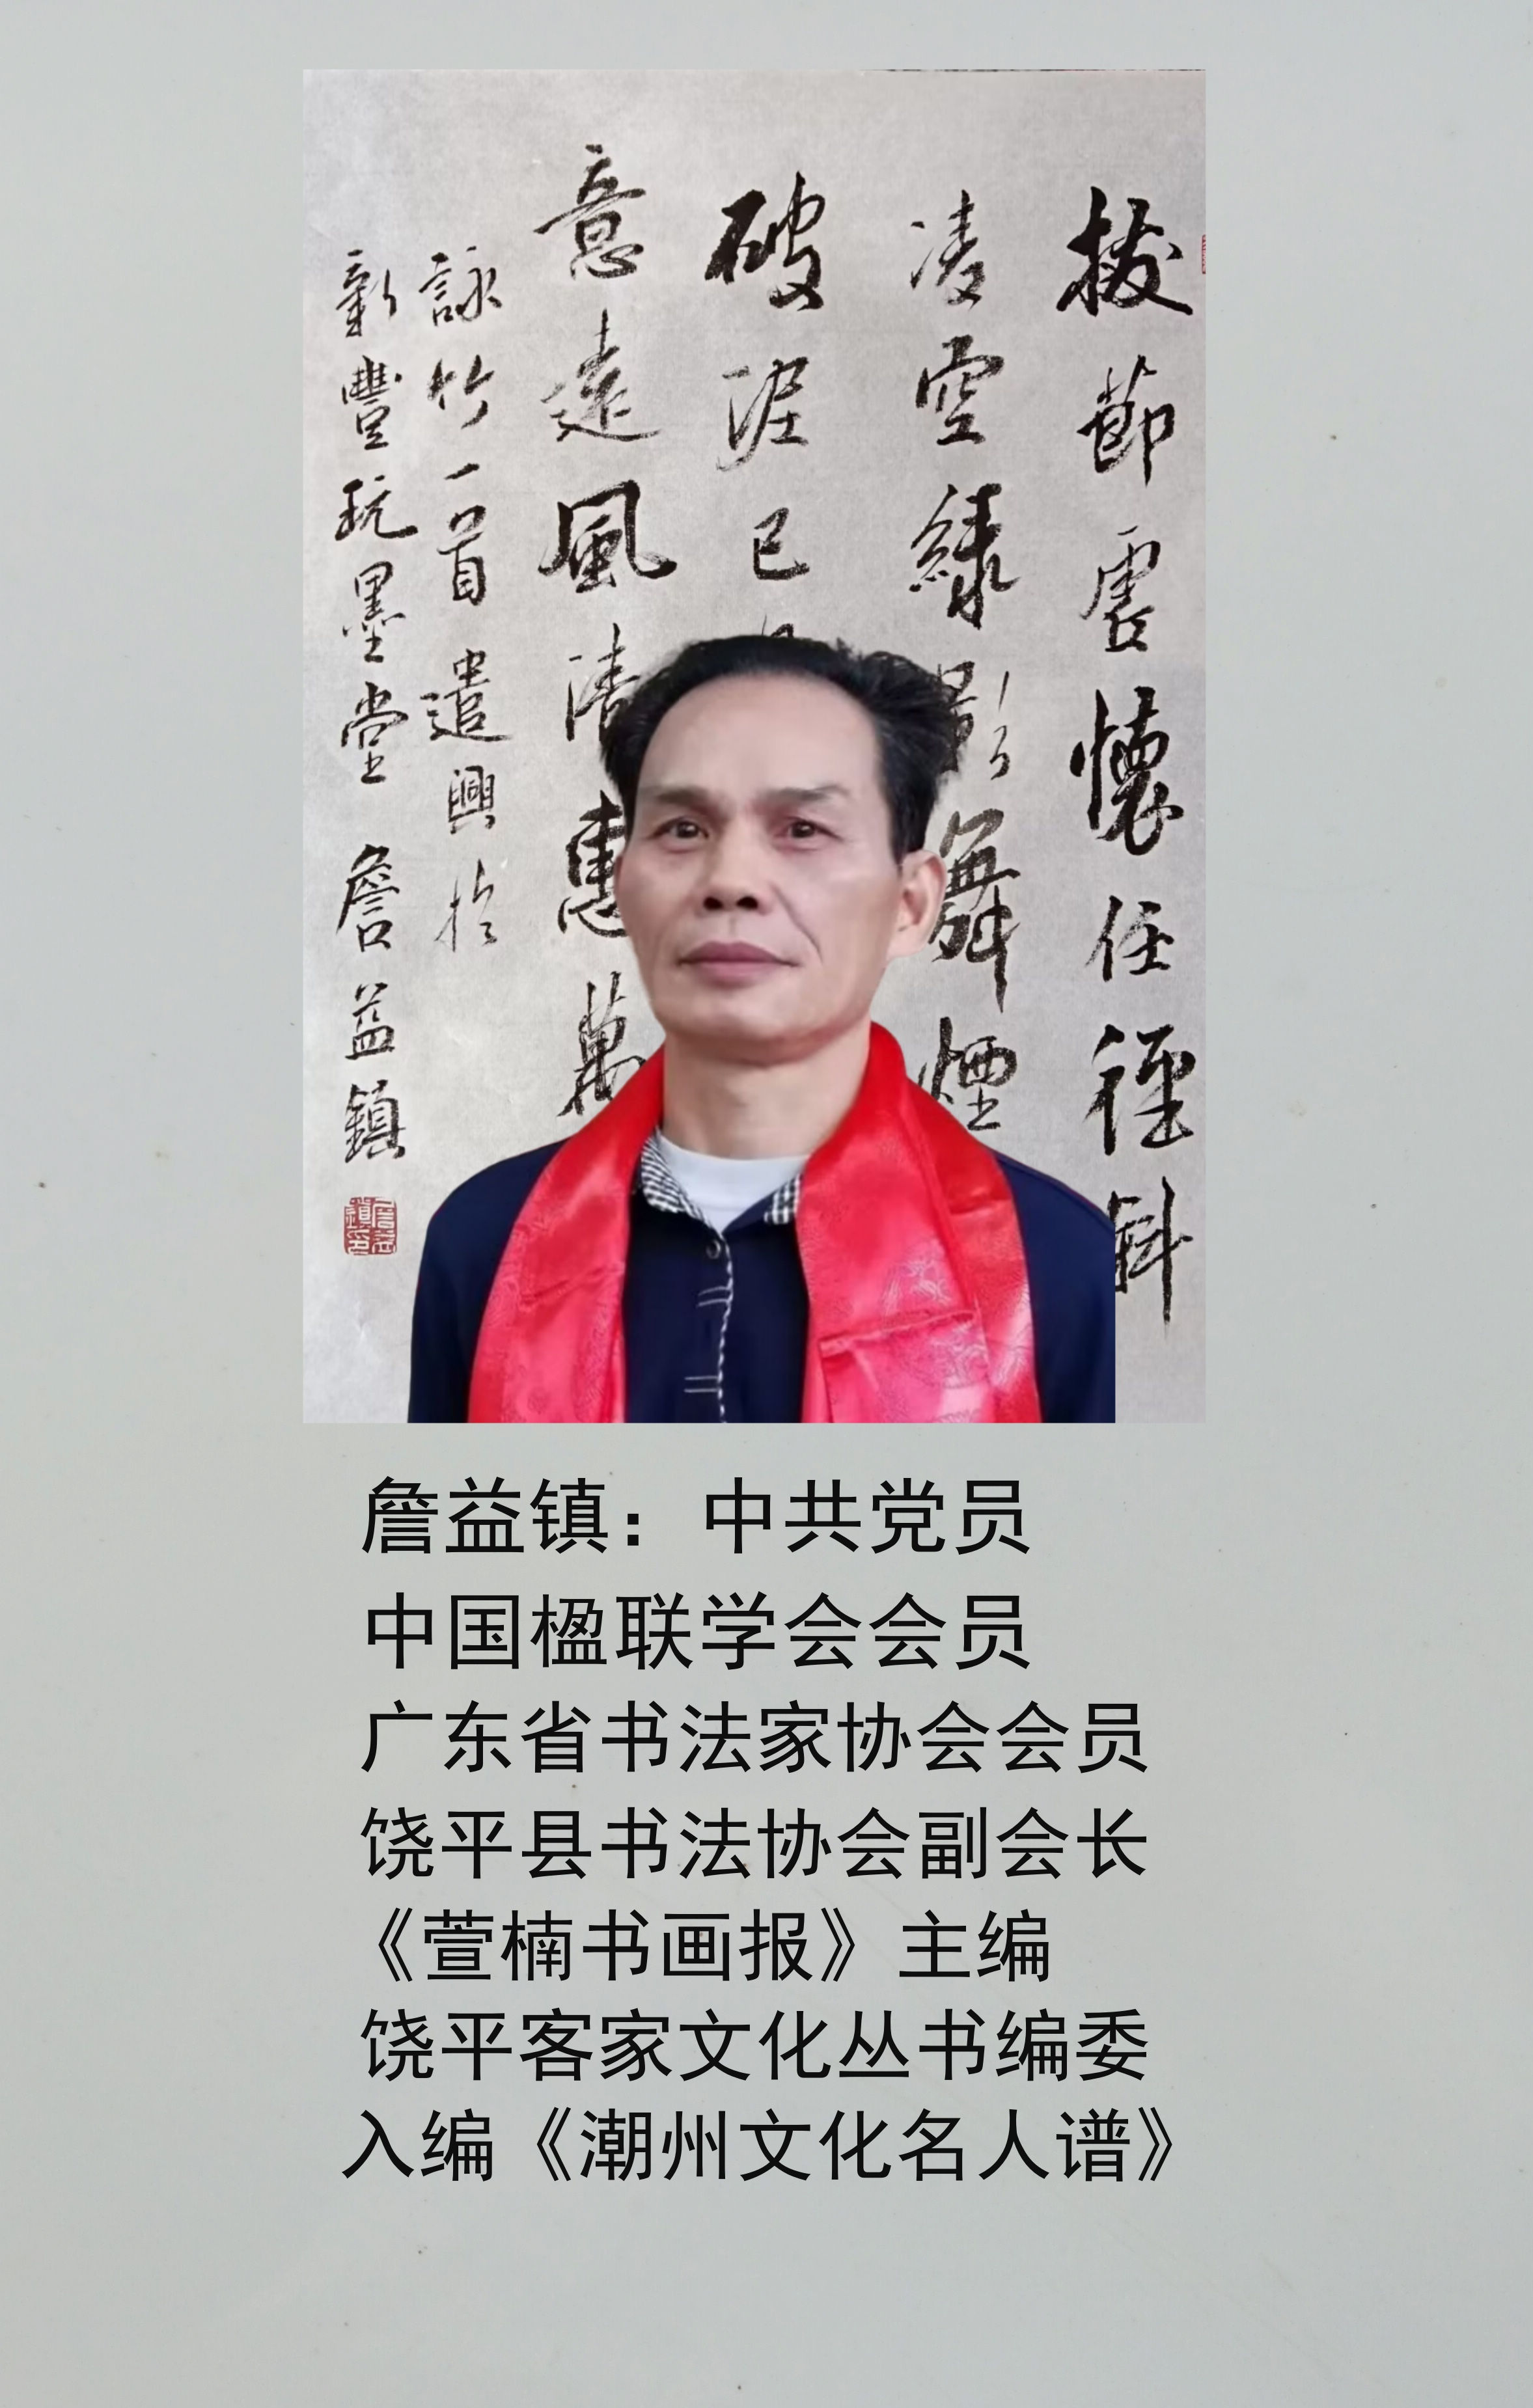 拔節虛懷任徑斜
凌空綠影舞煙
破泥已
意遠風清惠萬
詠竹一首遣興於
新豐玩墨堂 詹益鎮
詹益镇：中共党员
中国楹联学会会员
广东省书法家协会会员
饶平县书法协会副会长
《萱楠书画报》主编
饶平客家文化丛书编委
入编《潮州文化名人谱》